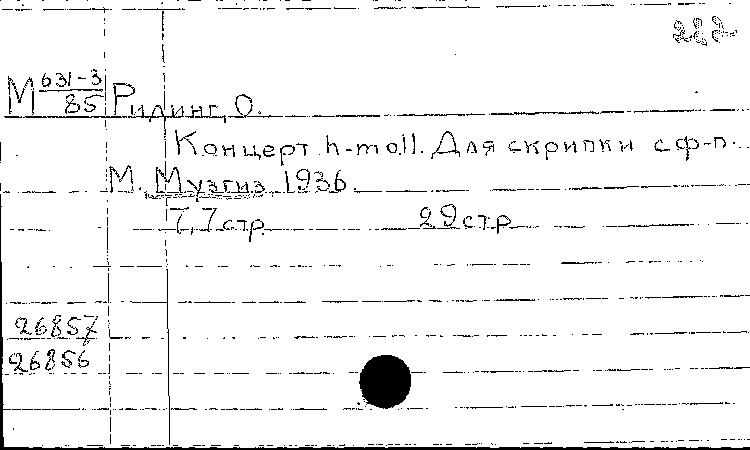 М 631-3/85 Ридинг, О.
Концерт h-moll. Для скрипки с ф-п.
М. Музгиз 1936.
7,7 стр. 29 стр.
26857
26856